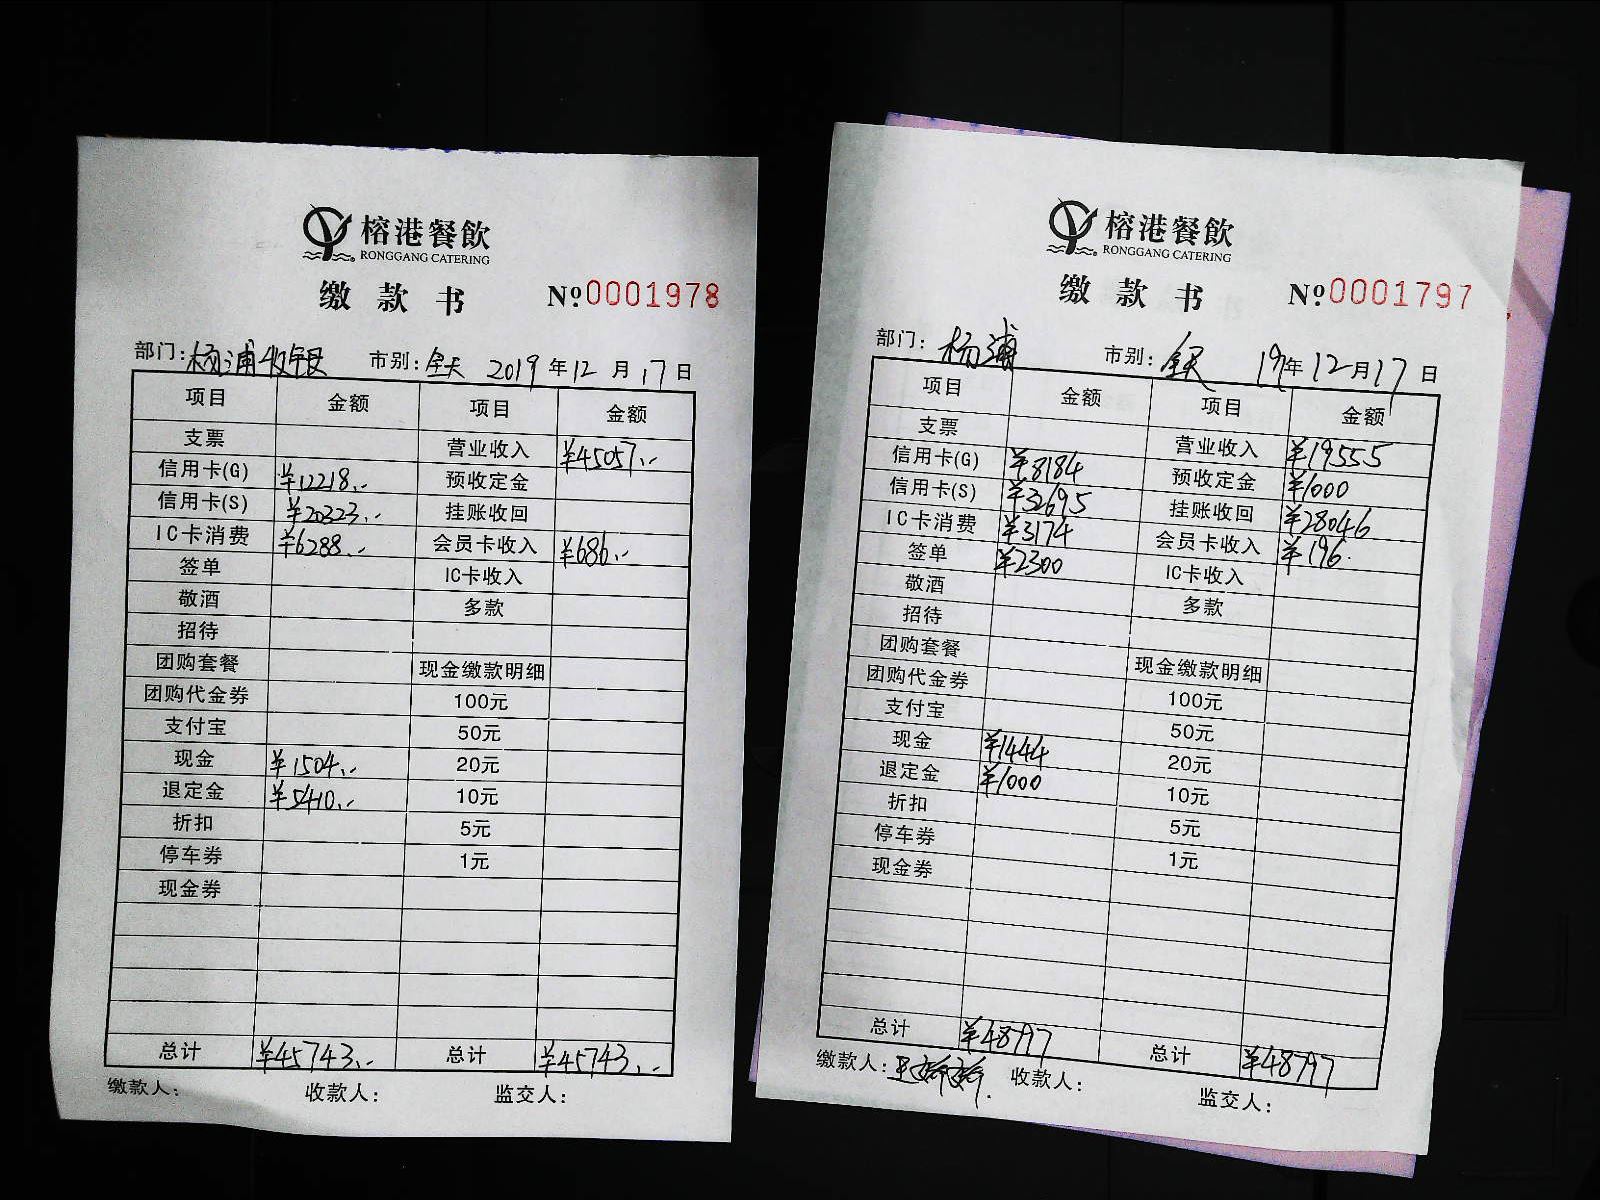 榕港餐飲
RONGGANG CATERING
缴款书 №0001978
部门：杨浦 市别：全天 2019年12月17日
项目 金额 项目 金额
支票 营业收入 ¥45057.-
信用卡(G) ¥12218.- 预收定金
信用卡(S) ¥20323.- 挂账收回
IC卡消费 ¥6288.- 会员卡收入 ¥686.-
签单 IC卡收入
敬酒 多款
招待
团购套餐 现金缴款明细
团购代金券 100元
支付宝 50元
现金 ¥1504.- 20元
退定金 ¥5410.- 10元
折扣 5元
停车券 1元
现金券
总计 ¥45743.- 总计 ¥45743.-
缴款人： 收款人： 监交人：
榕港餐飲
RONGGANG CATERING
缴款书 №0001797
部门：杨浦 市别：全天 19年12月17日
项目 金额 项目 金额
支票 营业收入 ¥19555
信用卡(G) ¥8184 预收定金 ¥1000
信用卡(S) ¥32695 挂账收回 ¥28046
IC卡消费 ¥3174 会员卡收入 ¥196.
签单 ¥2300 IC卡收入
敬酒 多款
招待
团购套餐 现金缴款明细
团购代金券 100元
支付宝 50元
现金 ¥1444 20元
退定金 ¥1000 10元
折扣 5元
停车券 1元
现金券
总计 ¥48797 总计 ¥48797
缴款人： 收款人： 监交人：